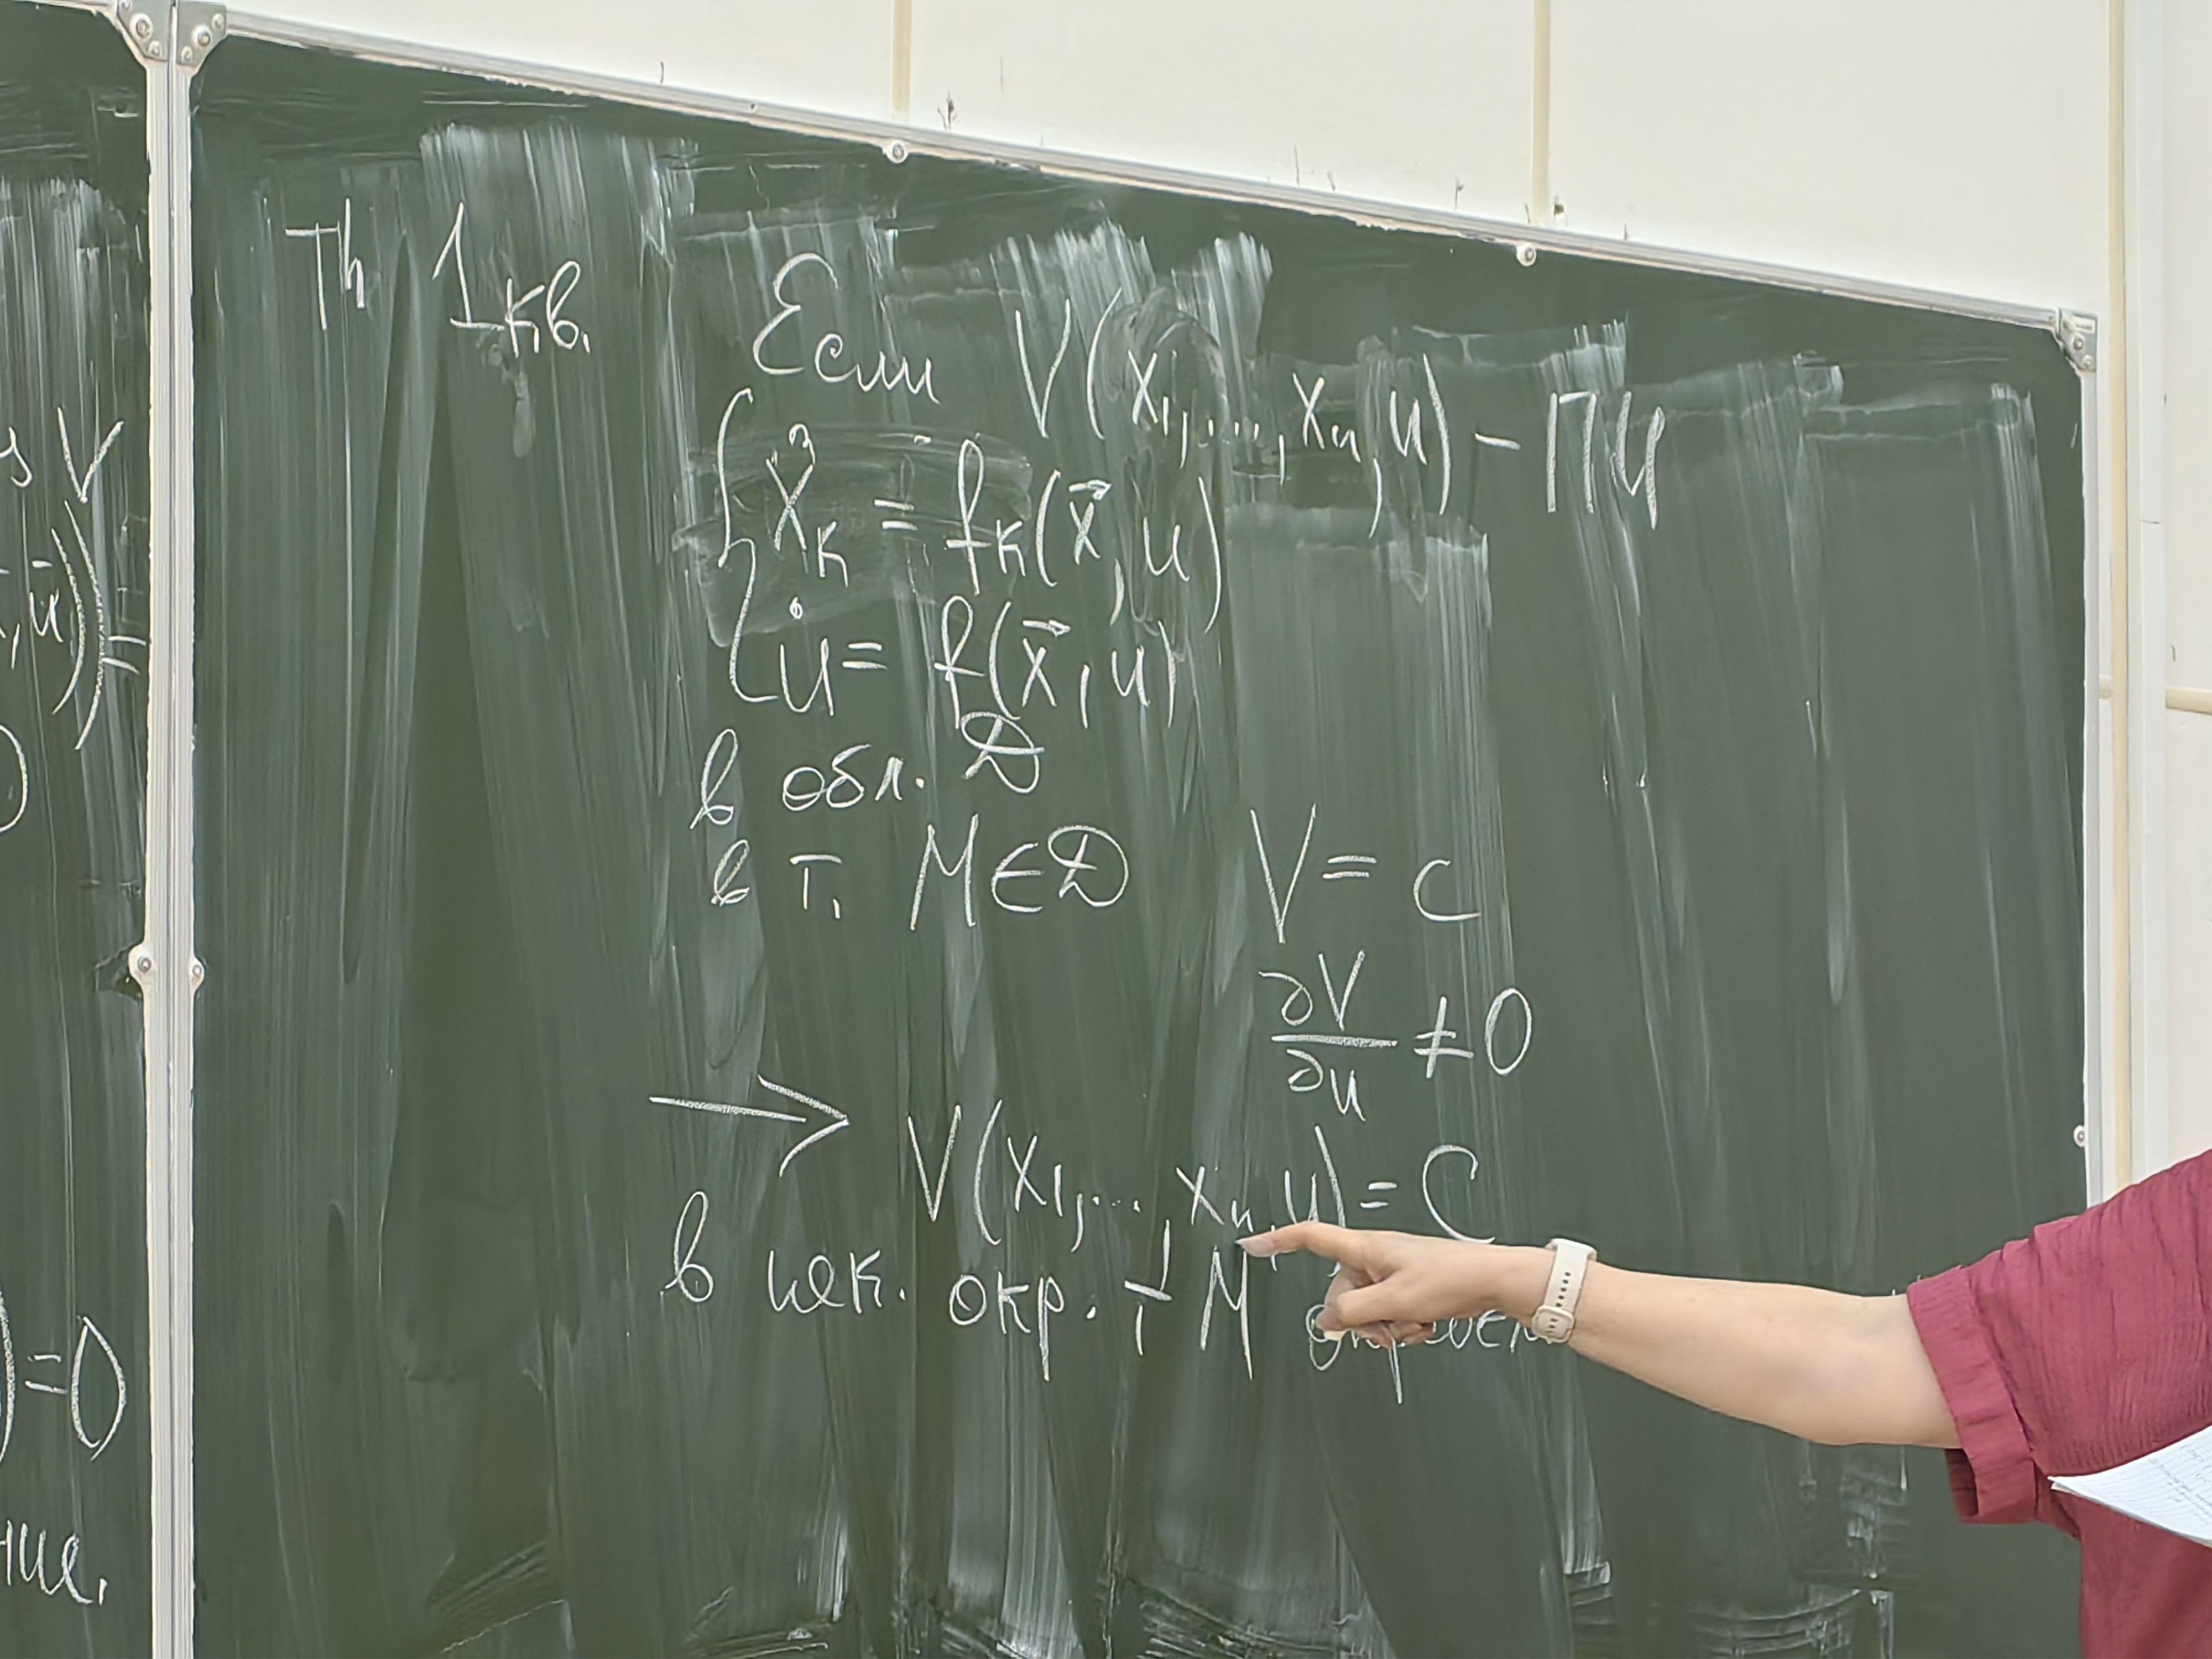 Th 1кв. Если V(x₁,...,xₙ,u) – ПИ
{ ẋₖ = fₖ(x⃗,u)
u̇ = f(x⃗,u)
в обл. D
в т. M∈D V = c
∂V/∂u ≠ 0
→ V(x₁,...,xₙ,u) = C
в нек. окр. т M
V
=
=0
ние.